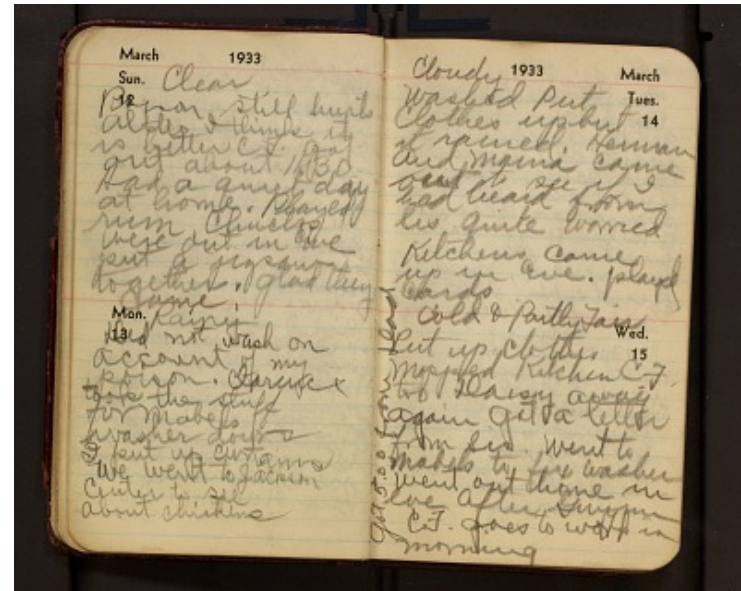 March 1933
Sun. Clear
12
Poison still hurts
altho I think it
is better C.F. got
out about
Had a quiet day
at home. Played
rum
were out in eve
put a jigsaw
together. glad they
came.
Mon. Rainy
13
Did not wash on
account of my
poison. Clarence
took the stuff
for Mabels
washer down
I put up curtains
We went to Jackson
Center to see
about chickens
Cloudy 1933 March
Tues.
14
Washed Put
Clothes up but
it rained. Herman
and Mama came
out to see if I
had heard from
Lis quite worried
Kitchens came
up in eve. played
cards
Cold & Partly Fair
Wed.
15
Put up clothes
Mopped Kitchen C.F.
to Daisy away
again got a letter
from Lis. Went to
Mabels to fix washer
went out home in
eve after supper
C.F. goes to work in
morning
Got 5.00 from